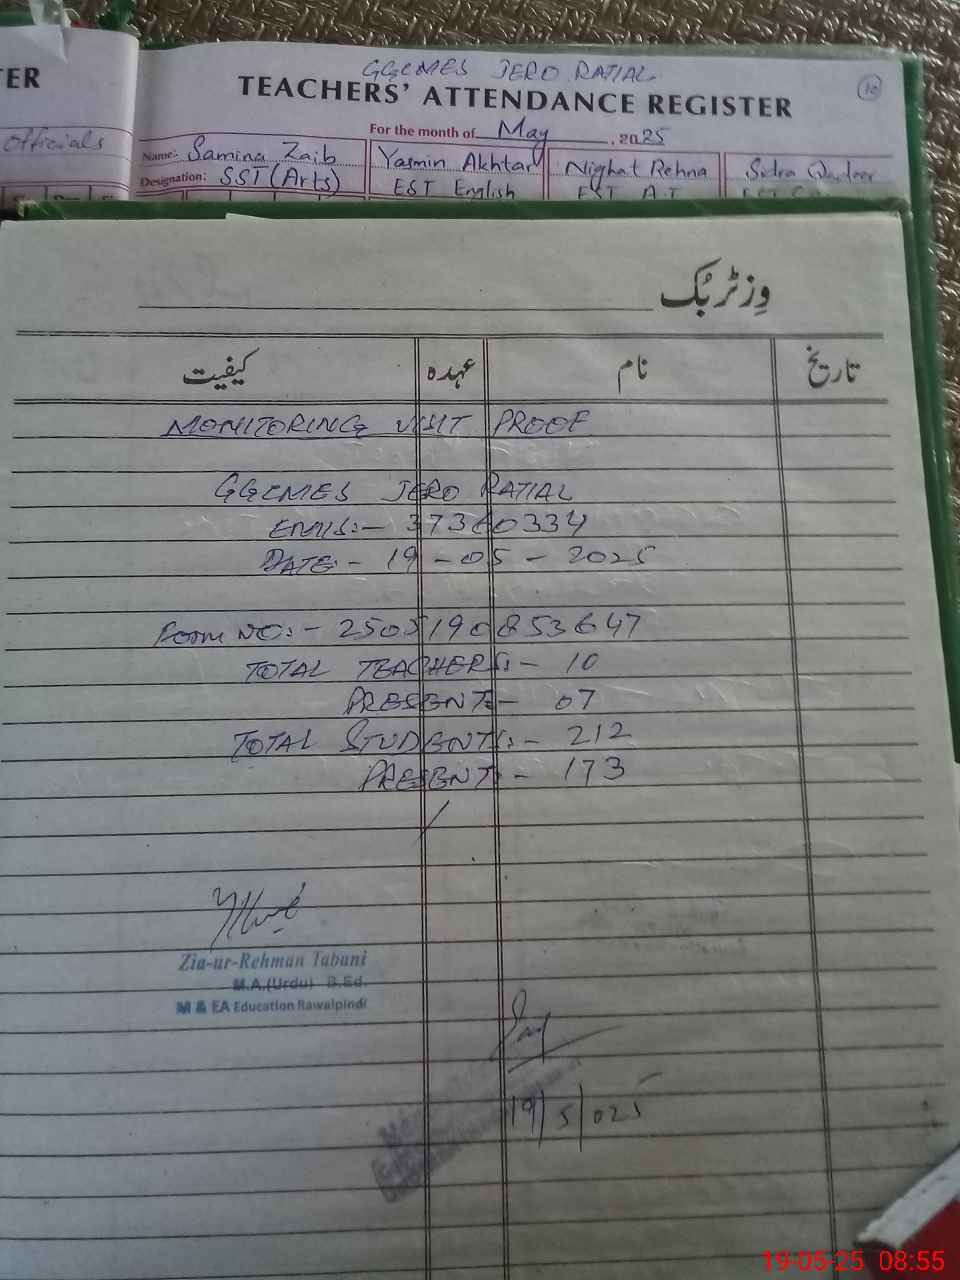 TER
officials
GGCMES JERO RATIAL
10
TEACHERS' ATTENDANCE REGISTER
For the month of May, 2025
Name: Samina Zaib Yasmin Akhtar Nighat Rehna Sidra
Designation: SST (Arts) EST English EST
وِزٹر بُک
تاریخ نام عہدہ کیفیت
MONITORING VISIT PROOF
GGCMES JERO RATIAL
EMIS:- 37360334
DATE:- 19-05-2025
Form NO:- 2505190853647
TOTAL TEACHERS:- 10
PRESENT:- 07
TOTAL STUDENTS:- 212
PRESENT:- 173
Zia-ur-Rehman Tabani
M.A.(Urdu) B.Ed.
M & EA Education Rawalpindi
19/5/025
19-05-25 08:55